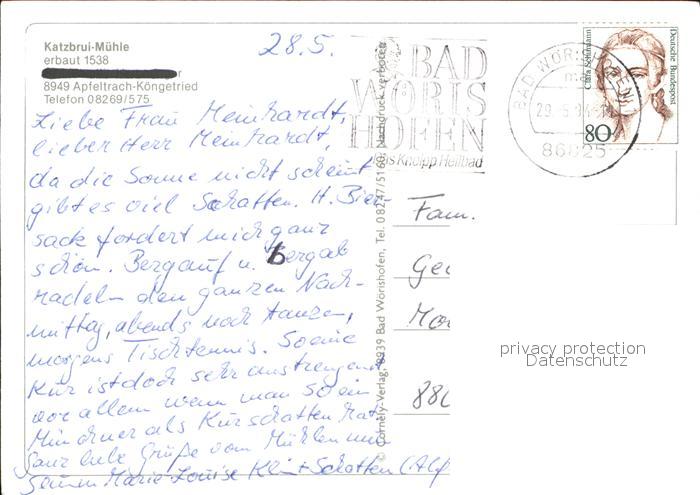 Katzbrui-Mühle
erbaut 1538
8949 Apfeltrach-Köngetried
Telefon 08269/575
28.5.
Liebe Frau Meinhardt,
lieber Herr Meinhardt,
da die Sonne nicht scheint
gibt es viel Schatten. H. Bier-
sack fordert mich ganz
schön. Bergauf u. bergab
radeln den ganzen Nach-
mittag, abends noch tanzen,
morgens Tischtennis. So eine
Kur ist doch sehr anstrengend
vor allem wenn man so ein
Münchner als Kurschatten hat
Ganz liebe Grüße vom
Marie-Louise + Schatten (Alf
© Cornely-Verlag, 8939 Bad Wörishofen, Tel. 08247/5160, Nachdruck verboten
BAD
WÖRIS
HOFEN
das Kneipp Heilbad
BAD WÖRIS
86825
Clara Schumann
Deutsche Bundespost
80
Fam.
privacy protection
Datenschutz